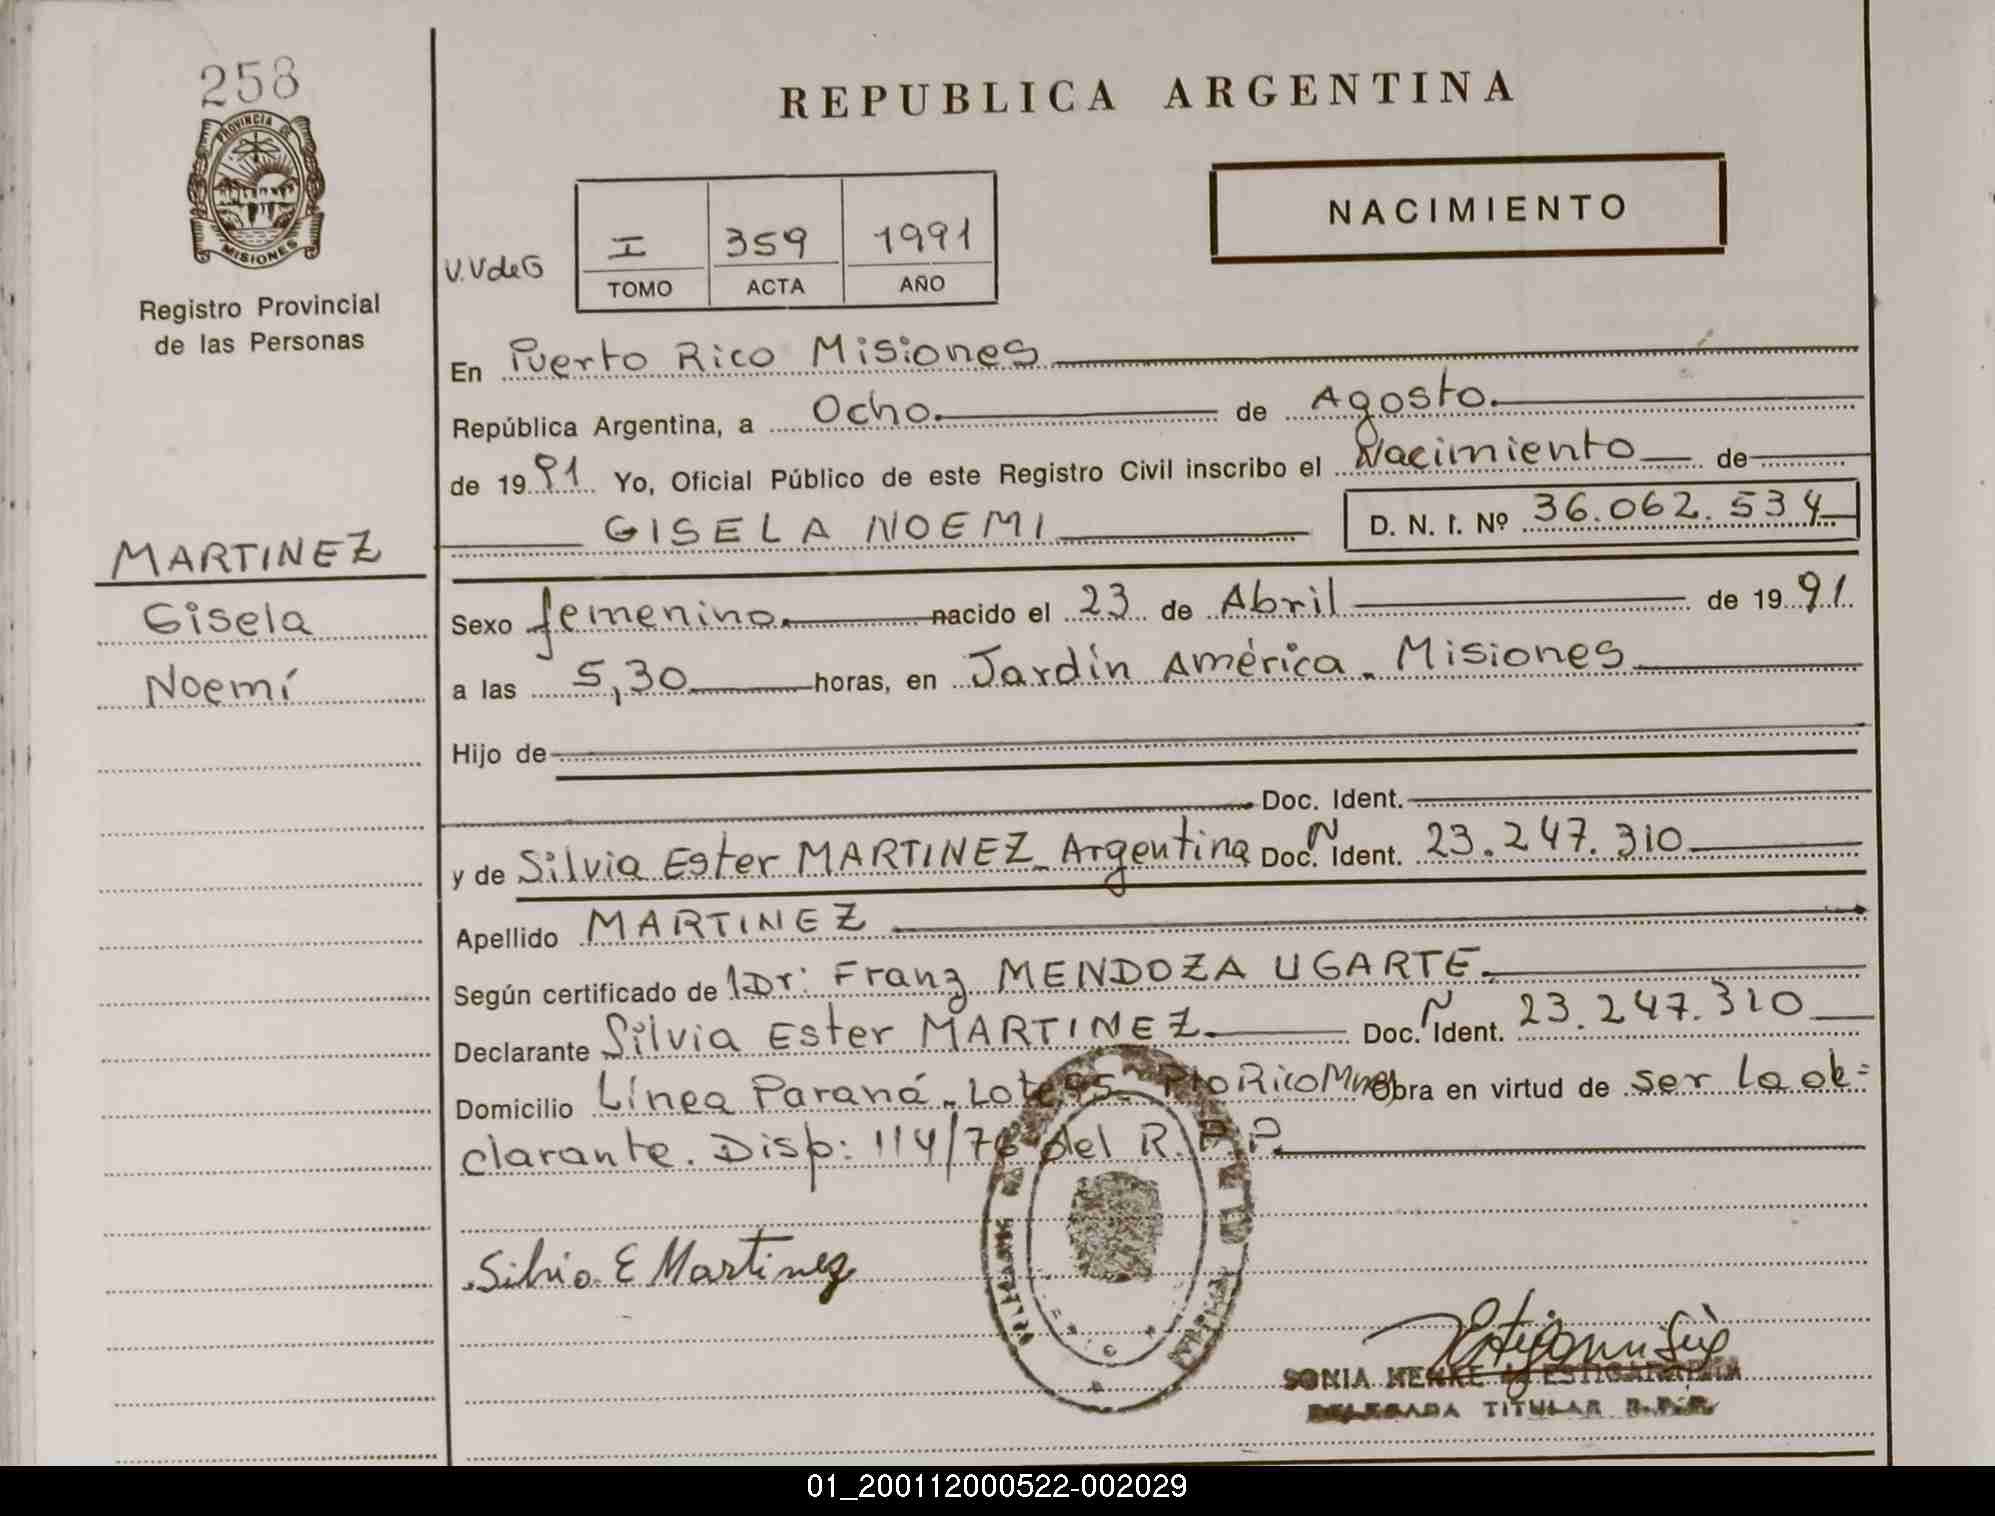 258
PROVINCIA DE
MISIONES
Registro Provincial
de las Personas
REPUBLICA ARGENTINA
NACIMIENTO
V.VdeG
I 359 1991
TOMO ACTA AÑO
En Puerto Rico Misiones
República Argentina, a Ocho. de Agosto.
de 1991 Yo, Oficial Público de este Registro Civil inscribo el Nacimiento de
GISELA NOEMI D. N. I. Nº 36.062.534
MARTINEZ
Gisela
Noemí
Sexo femenino. nacido el 23 de Abril de 1991.
a las 5,30 horas, en Jardín América. Misiones
Hijo de
Doc. Ident.
y de Silvia Ester MARTINEZ_Argentina Doc. N Ident. 23.247.310
Apellido MARTINEZ
Según certificado de Dr: Franz MENDOZA UGARTE.
Declarante Silvia Ester MARTINEZ. Doc. N Ident. 23.247.310
Domicilio Línea Paraná. Lote 95 Pto Rico Mnes Obra en virtud de ser la de=
clarante. Disp: 114/76 del R.P.P.
Silvia E Martinez
SONIA HENKE de ESTIGARRIBIA
DELEGADA TITULAR R.P.P.
01_200112000522-002029